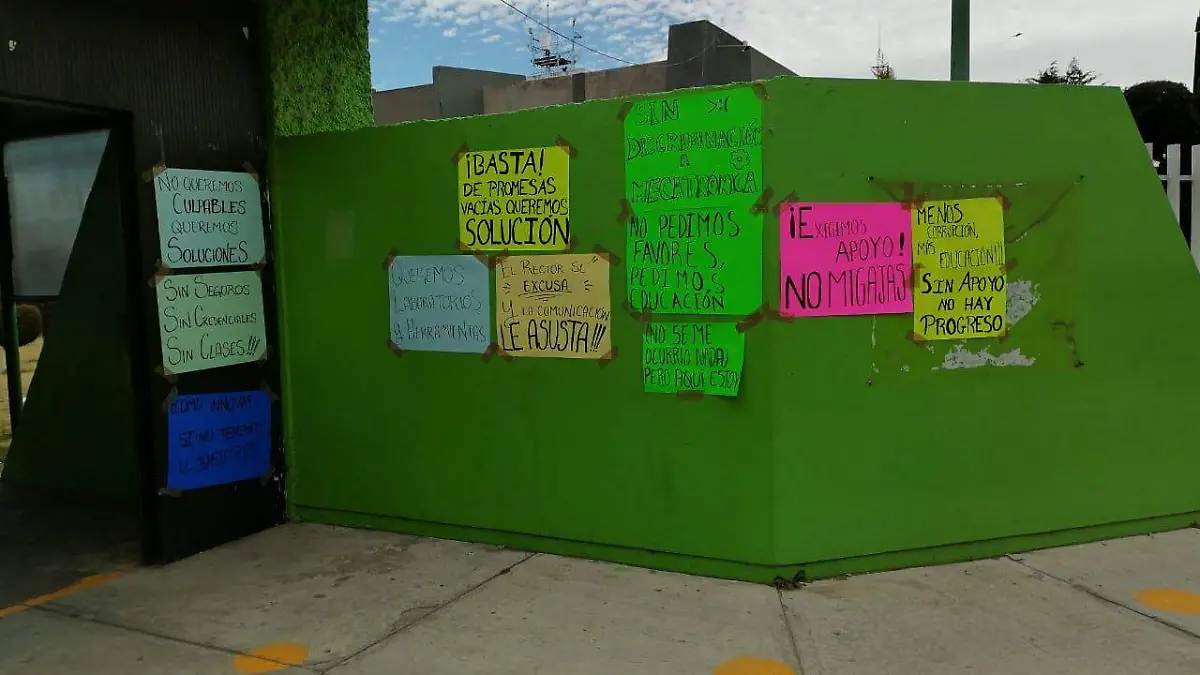 NO QUEREMOS
CULPABLES
QUEREMOS
SOLUCIONES
SIN SEGUROS
SIN CREDENCIALES
SIN CLASES!!!
¿CÓMO INNOVAR
SI NO TENEMOS
¡BASTA!
DE PROMESAS
VACÍAS QUEREMOS
SOLUCIÓN
QUEREMOS
LABORATORIOS
Y HERRAMIENTAS
EL RECTOR SE
EXCUSA
Y LA COMUNICACIÓN
LE ASUSTA!!!
SIN >:(
DISCRIMINACIÓN
A
MECATRÓNICA
NO PEDIMOS
FAVORES,
PEDIMOS
EDUCACIÓN
(NO SE ME
OCURRIO NADA)
PERO AQUI ESTOY
¡EXIGIMOS
APOYO!
NO MIGAJAS
MENOS
CORRUPCIÓN,
MÁS
EDUCACIÓN!!!
SIN APOYO
NO HAY
PROGRESO